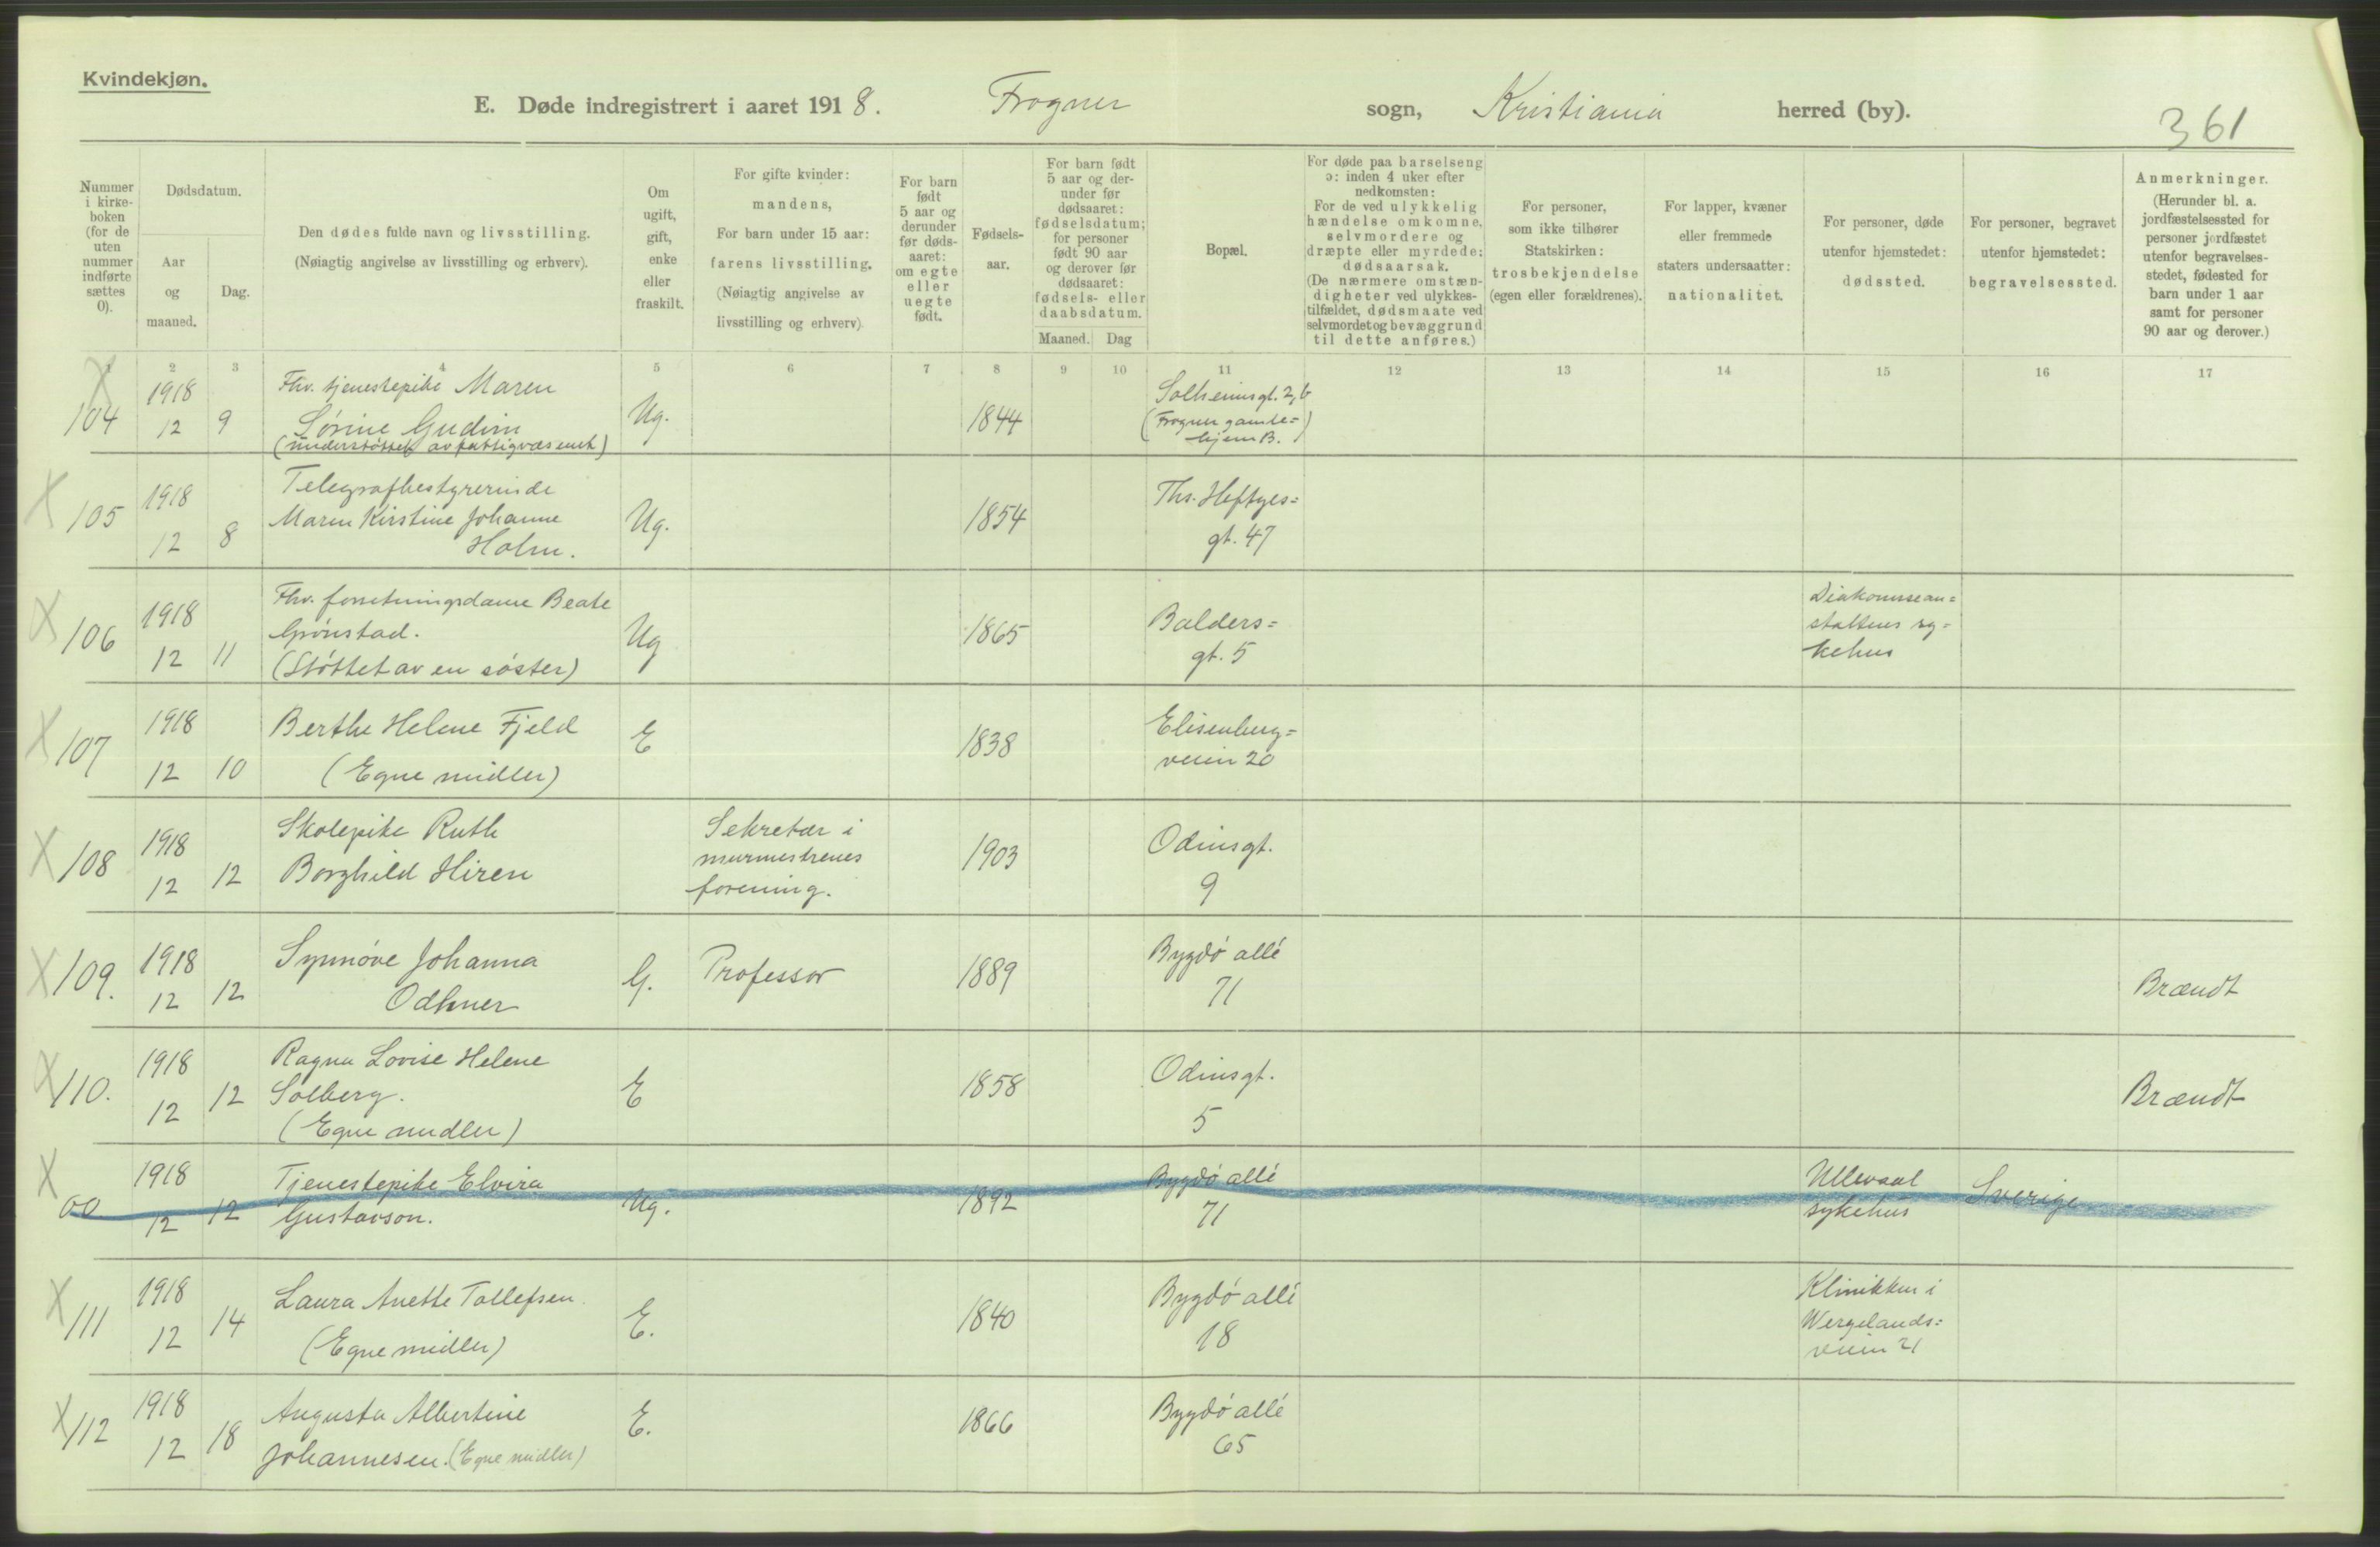 Kvindekjøn.
E. Døde indregistrert i aaret 1918. Frogner sogn, Kristiania herred (by). 361
Nummer i kirke-boken (for de uten nummer indførte sættes 0).
Dødsdatum.
Aar og maaned.
Dag.
Den dødes fulde navn og livsstilling.
(Nøiagtig angivelse av livsstilling og erhverv).
Om ugift, gift, enke eller fraskilt.
For gifte kvinder: mandens,
For barn under 15 aar: farens livsstilling.
(Nøiagtig angivelse av livsstilling og erhverv).
For barn født 5 aar og derunder før døds-aaret: om egte eller uegte født.
Fødsels-aar.
For barn født 5 aar og der-under før dødsaaret: fødselsdatum; for personer født 90 aar og derover før dødsaaret: fødsels- eller daabsdatum.
Maaned. Dag
Bopæl.
For døde paa barselseng ɔ: inden 4 uker efter nedkomsten:
For de ved ulykkelig hændelse omkomne, selvmordere og dræpte eller myrdede: dødsaarsak.
(De nærmere omstæn-digheter ved ulykkes-tilfældet, dødsmaate ved selvmordet og bevæggrund til dette anføres.)
For personer, som ikke tilhører Statskirken: trosbekjendelse (egen eller forældrenes).
For lapper, kvæner eller fremmede staters undersaatter: nationalitet.
For personer, døde utenfor hjemstedet: dødssted.
For personer, begravet utenfor hjemstedet: begravelsessted.
Anmerkninger.
(Herunder bl. a. jordfæstelsessted for personer jordfæstet utenfor begravelses-stedet, fødested for barn under 1 aar samt for personer 90 aar og derover.)
1 2 3 4 5 6 7 8 9 10 11 12 13 14 15 16 17
X 104 1918 12 9 Fhv. tjenestepike Maren Sørine Gudim (understøttet av fattigvæsenet) Ug. 1844 Solheimsgt. 2b (Frogner gamle=hjem B.)
X 105 1918 12 8 Telegrafbestyrerinde Maren Kirstine Johanne Holm. Ug. 1854 Ths. Heftyes=gt. 47
X 106 1918 12 11 Fhv. forretningsdame Beate Grønstad. (Støttet av en søster) Ug 1865 Balders=gt. 5 Diakonissean=staltens sy=kehus
X 107 1918 12 10 Berthe Helene Fjeld (Egne midler) E 1838 Elisenberg=veien 20
X 108 1918 12 12 Skolepike Ruth Borghild Hiren Sekretær i murmestrenes forening. 1903 Odinsgt. 9
X 109. 1918 12 12 Synnøve Johanna Odhner G. Professor 1889 Bygdø allé 71 Brændt
X 110. 1918 12 12 Ragna Lovise Helene Solberg. (Egne midler) E 1858 Odinsgt. 5 Brændt
X 00 1918 12 12 Tjenestepike Elvira Gustavson. Ug. 1892 Bygdø allé 71 Ullevaal sykehus Sverige
X 111 1918 12 14 Laura Anette Tollefsen. (Egne midler) E. 1840 Bygdø allé 18 Klinikken i Wergelands=veien 21
X 112 1918 12 18 Augusta Albertine Johannesen. (Egne midler) E. 1866 Bygdø allé 65